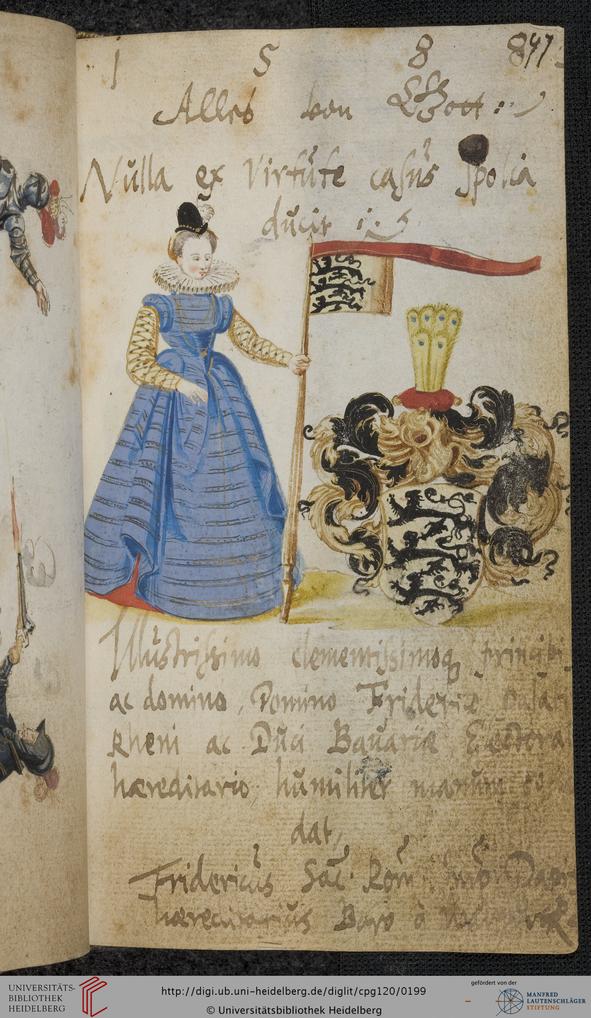 1 5 8
847
Alles von Gott :
Nulla ex Virtute casus spolia
ducit :
Illustrissimo clementissimoq principi
ac domino, Domino Frideric Palati
Rheni ac Duci Bavariæ, Electora
hæreditario, humiliter manum
dat,
Fridericus Sac. Rom. Imp. Dapi
hæreditarius Baro à
UNIVERSITÄTS-
BIBLIOTHEK
HEIDELBERG
http://digi.ub.uni-heidelberg.de/diglit/cpg120/0199
© Universitätsbibliothek Heidelberg
gefördert von der
MANFRED
LAUTENSCHLÄGER
STIFTUNG